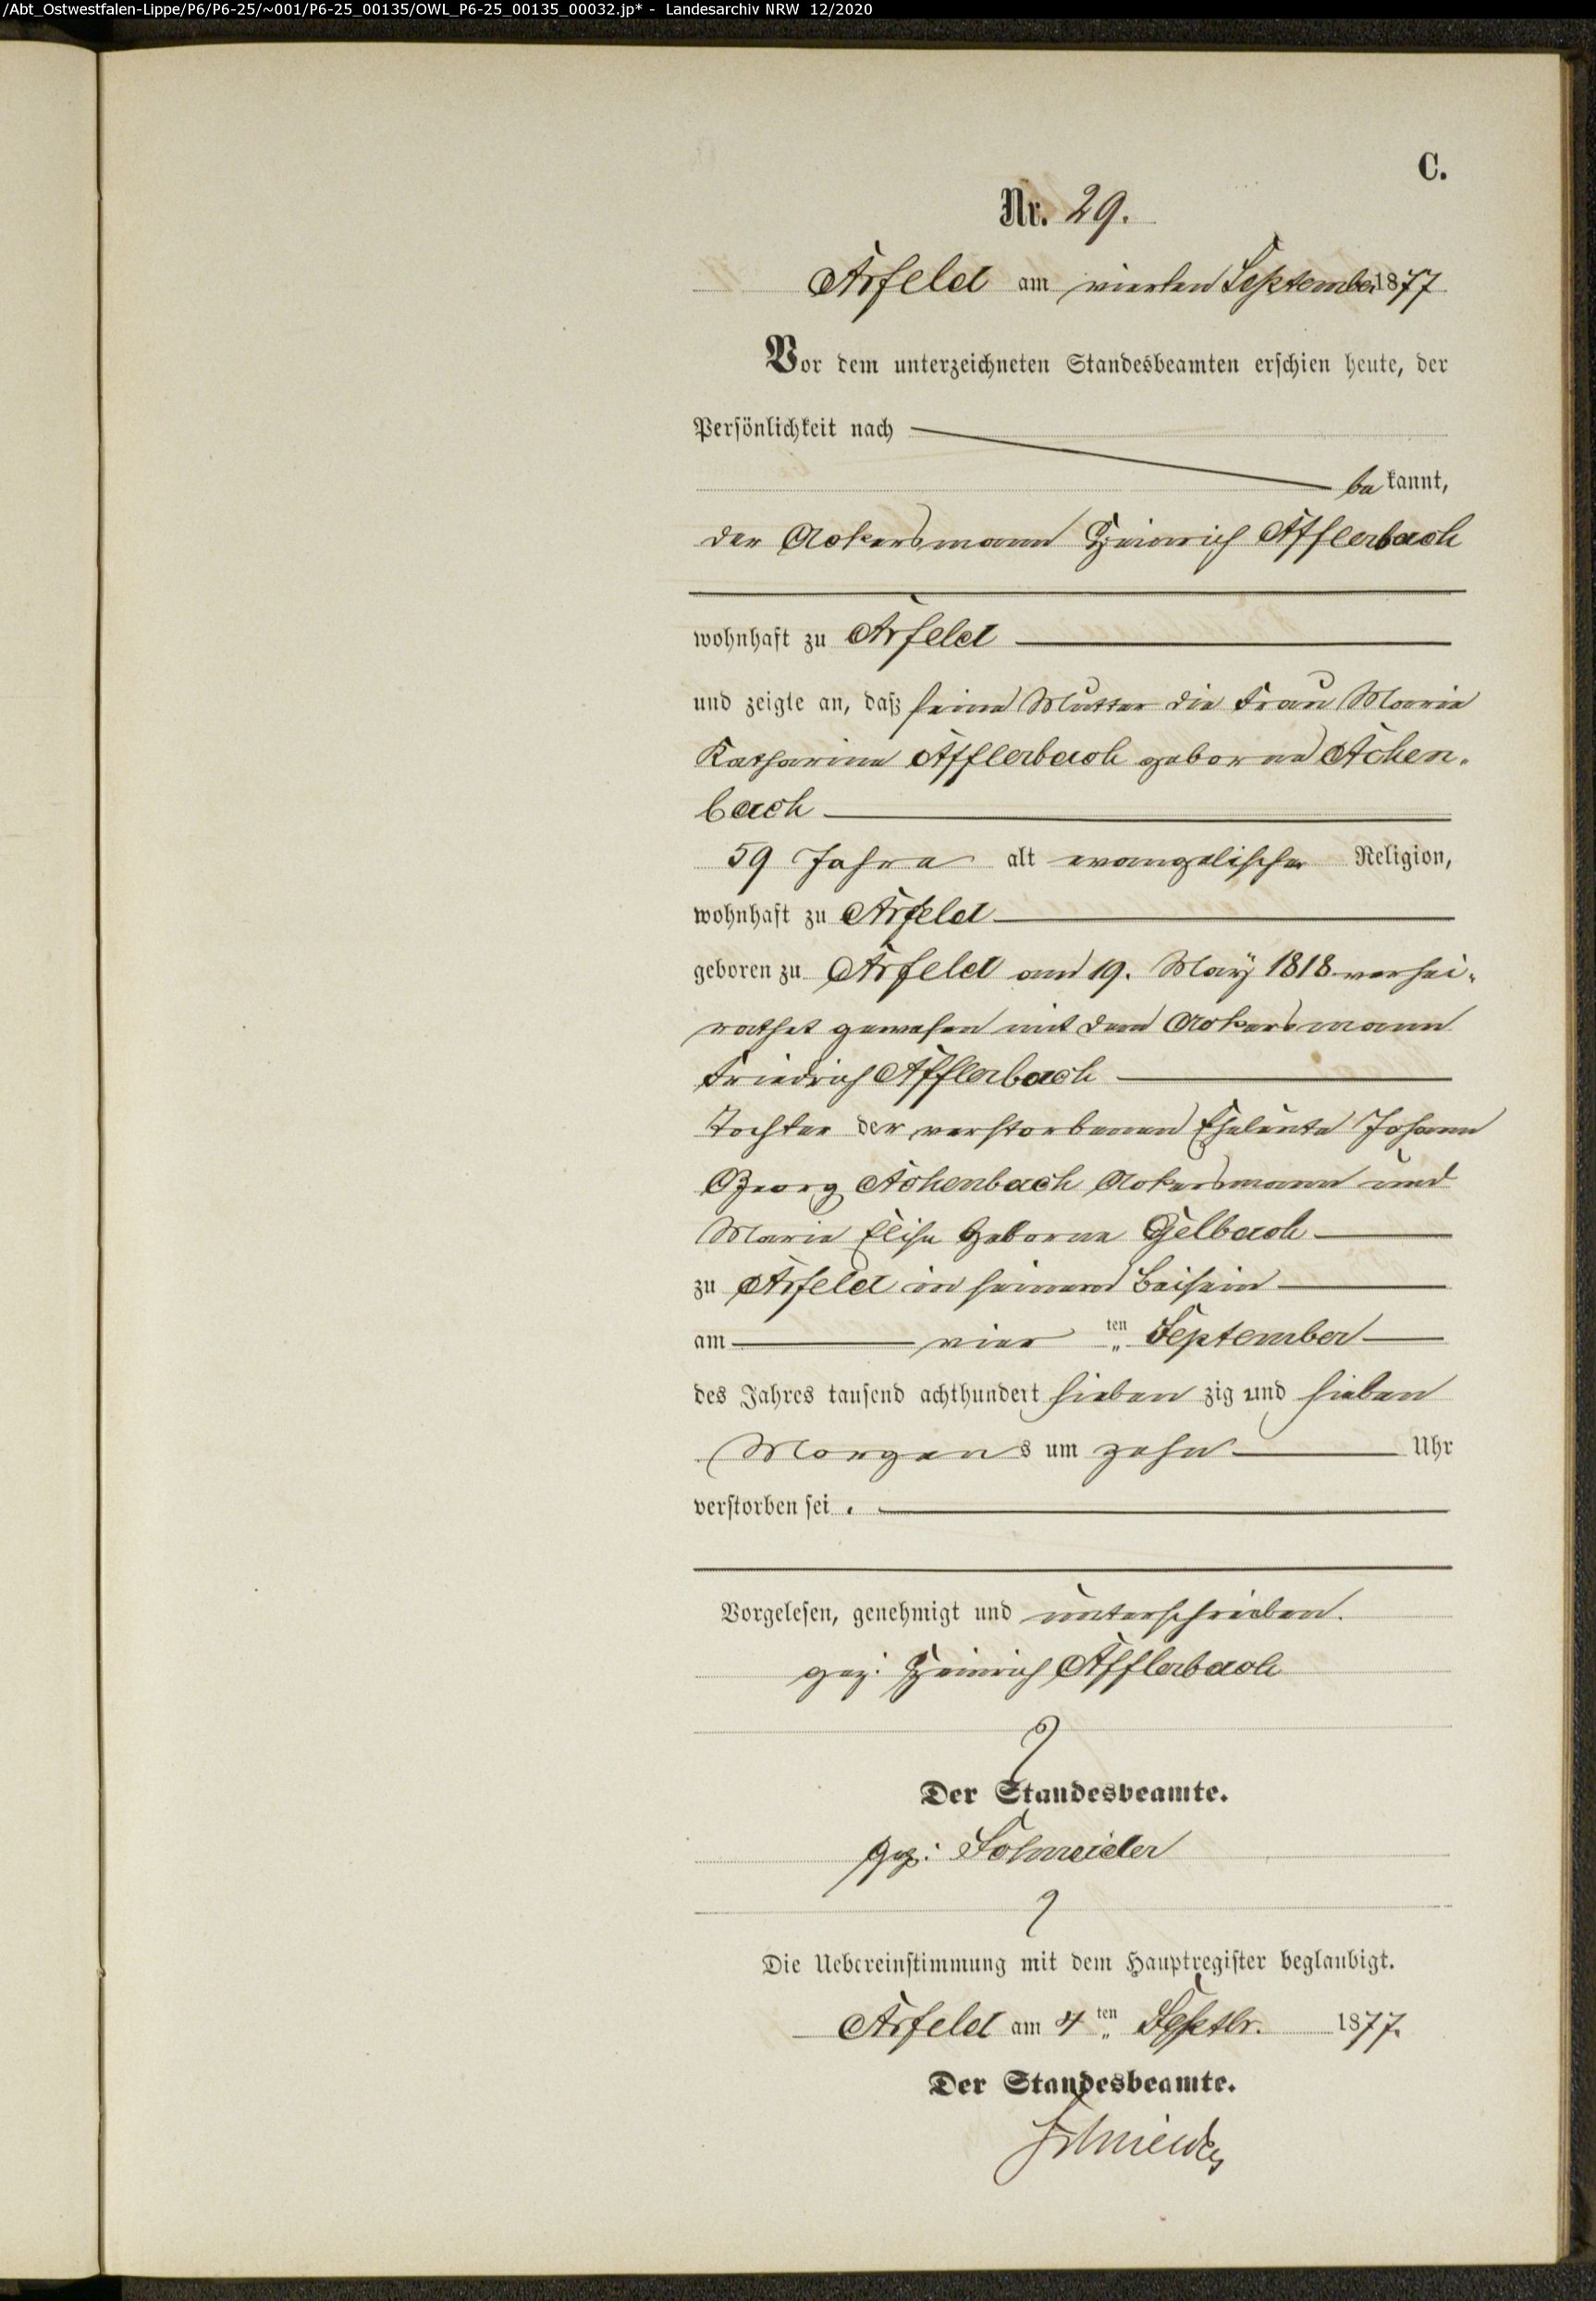 /Abt_Ostwestfalen-Lippe/P6/P6-25/~001/P6-25_00135/OWL_P6-25_00135_00032.jp* - Landesarchiv NRW 12/2020
C.
Nr. 29.
Arfeld am vierten September 1877
Vor dem unterzeichneten Standesbeamten erschien heute, der
Persönlichkeit nach
bekannt,
der Ackersmann Heinrich Afflerbach
wohnhaft zu Arfeld
und zeigte an, daß seine Mutter die Frau Marie
Katharine Afflerbach geborne Achen-
bach
59 Jahre alt evangelischer Religion,
wohnhaft zu Arfeld
geboren zu Arfeld am 19. May 1818 verhei-
rathet gewesen mit dem Ackersmann
Friedrich Afflerbach
Tochter der verstorbenen Eheleute Johann
Georg Achenbach Ackersmann und
Marie Elise geborne Gelbach
zu Arfeld in seinem Beisein
am vier ten September
des Jahres tausend achthundert sieben zig und sieben
Morgens um zehn Uhr
verstorben sei.
Vorgelesen, genehmigt und unterschrieben.
gez: Heinrich Afflerbach
Der Standesbeamte.
gez: Schneider
Die Uebereinstimmung mit dem Hauptregister beglaubigt.
Arfeld am 4 ten Septbr. 1877.
Der Standesbeamte.
Schneider